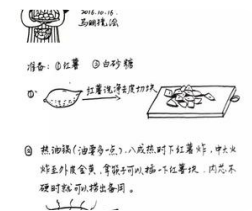 2016.10.16.
准备：①红薯 ②白砂糖
① 红薯洗净去皮切块
② 热油锅（油要多一点），八成热时下红薯炸，中大火
炸至外皮金黄，拿筷子可以插一下红薯块，内芯不
硬时就可以捞出备用。